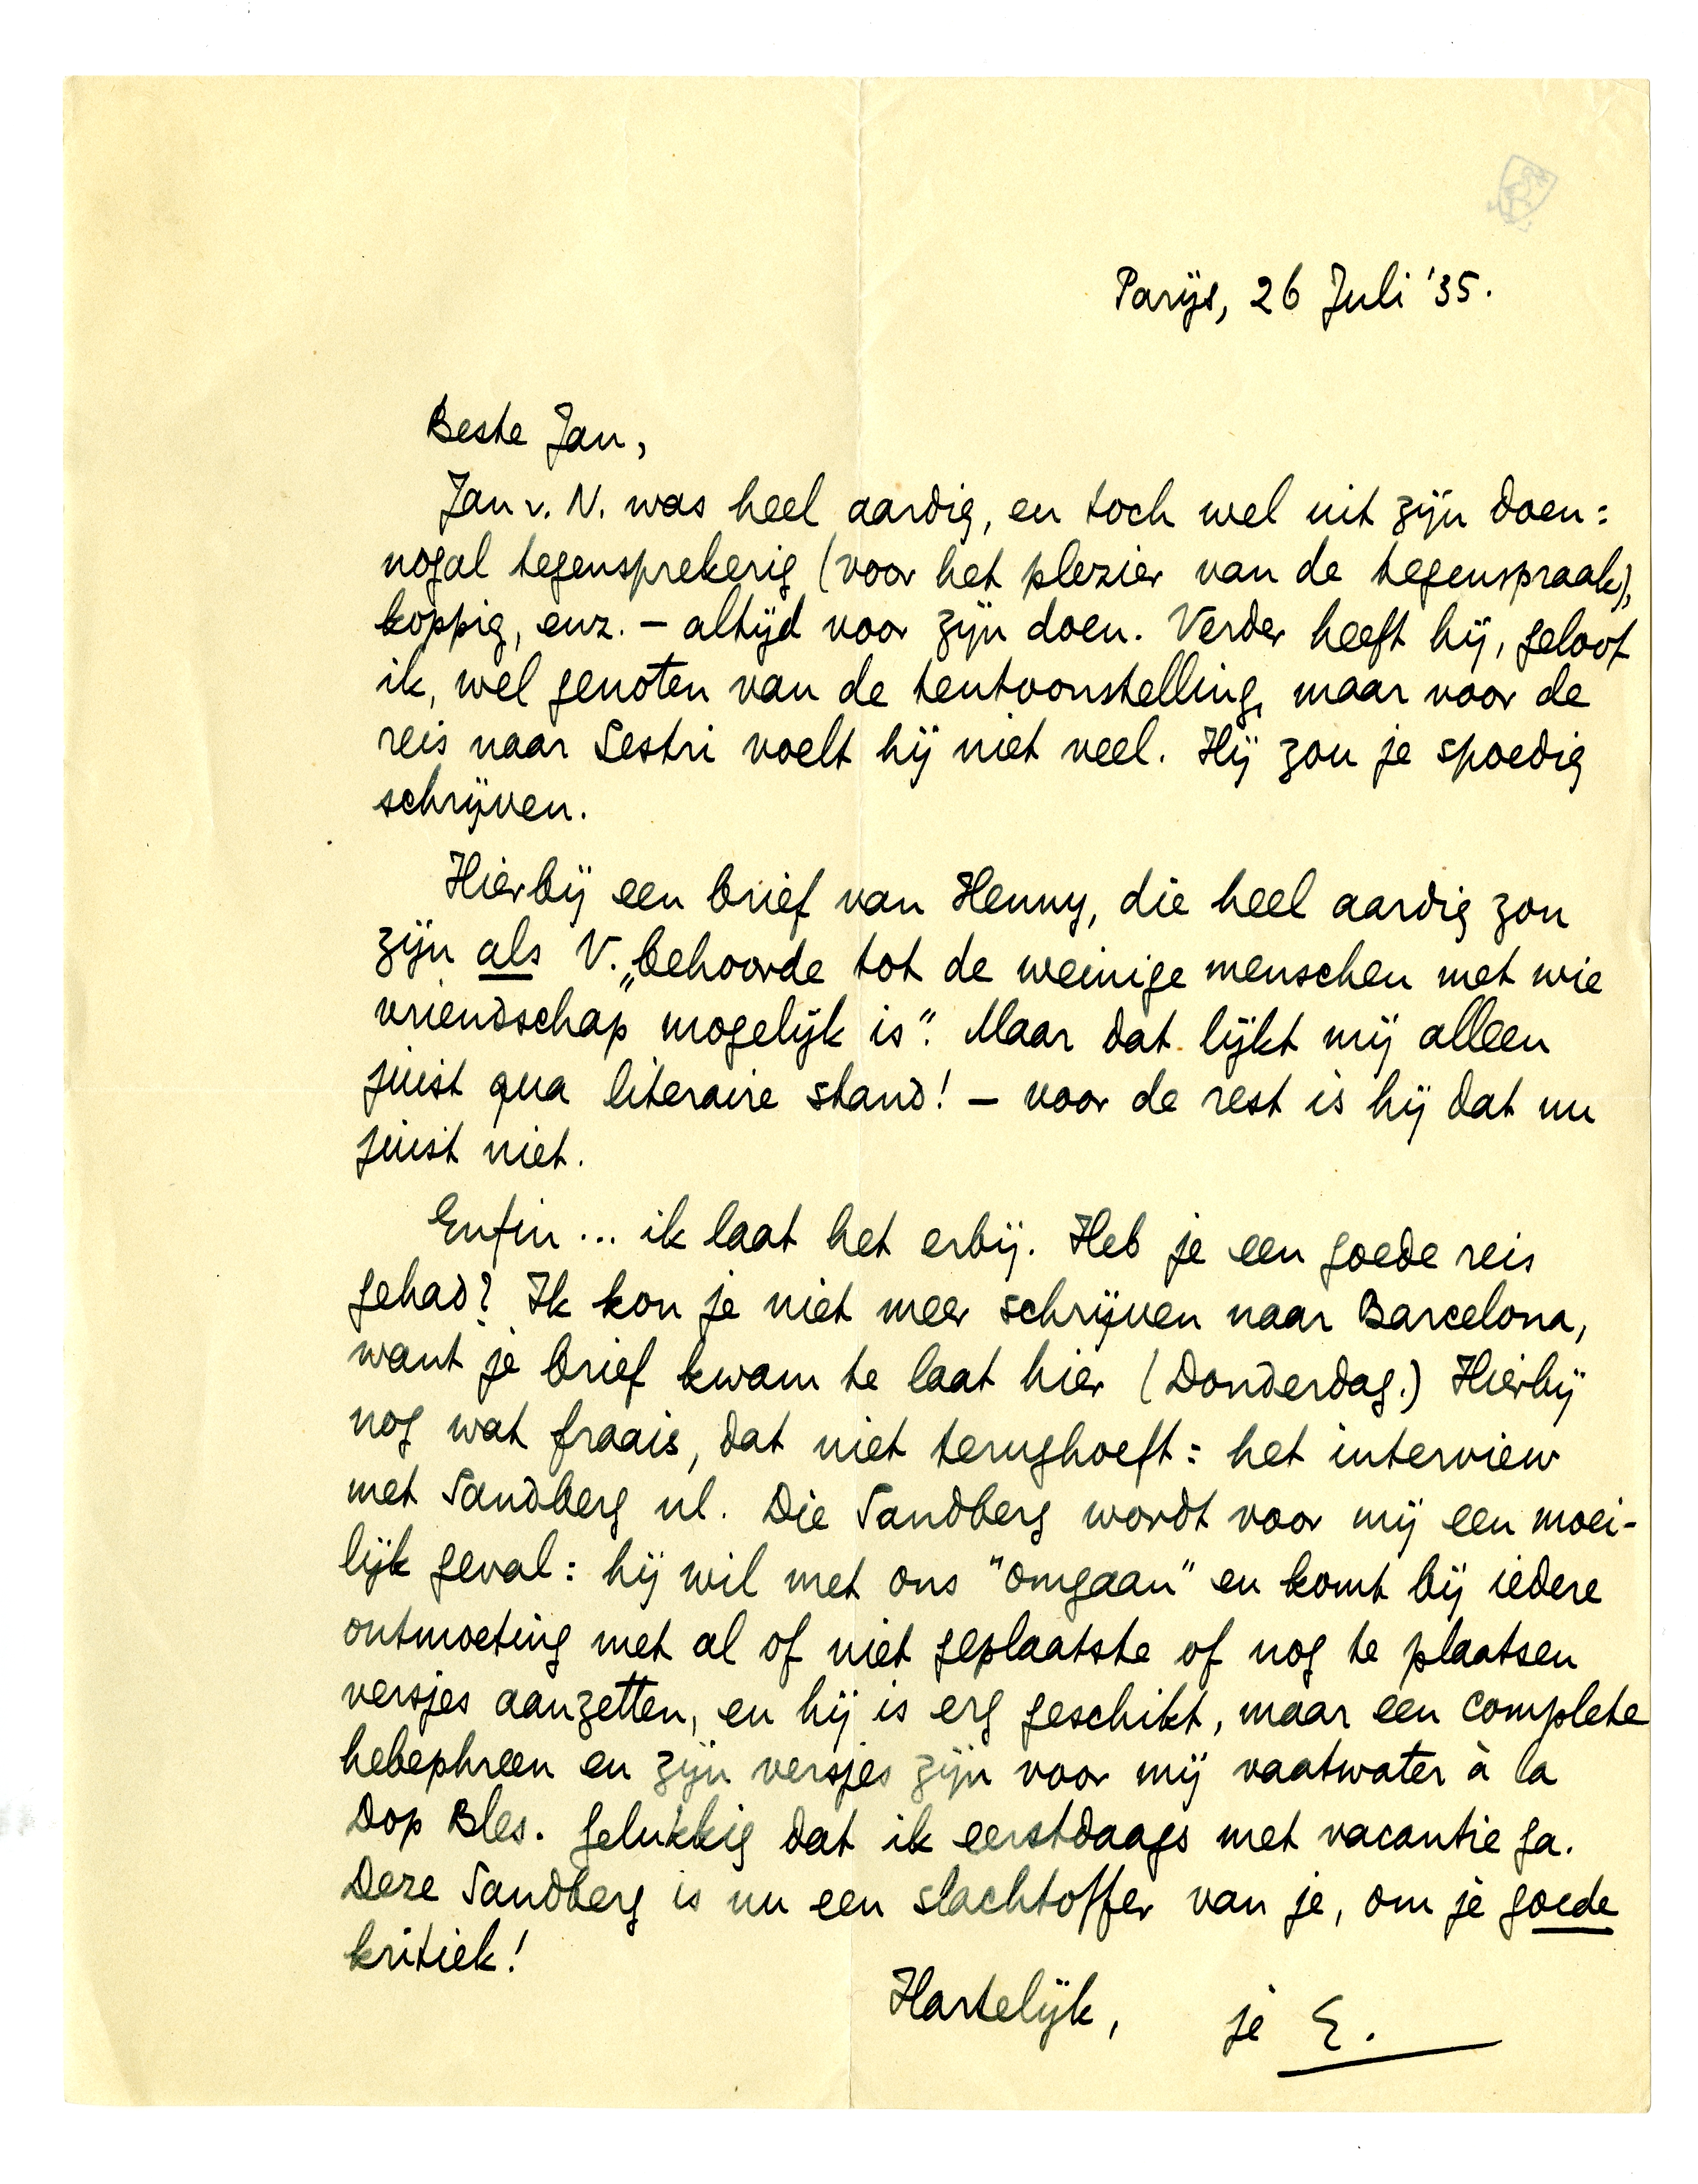 Parijs, 26 Juli '35.
Beste Jan,
Jan v. N. was heel aardig, en toch wel uit zijn doen:
nogal tegensprekerig (voor het plezier van de tegenspraak),
koppig, enz. – altijd voor zijn doen. Verder heeft hij, geloof
ik, wel genoten van de tentoonstelling, maar voor de
reis naar Sestri voelt hij niet veel. Hij zou je spoedig
schrijven.
Hierbij een brief van Henny, die heel aardig zou
zijn als V. „behoorde tot de weinige menschen met wie
vriendschap mogelijk is". Maar dat lijkt mij alleen
juist qua literaire stand! – voor de rest is hij dat nu
juist niet.
Enfin... ik laat het erbij. Heb je een goede reis
gehad? Ik kon je niet meer schrijven naar Barcelona,
want je brief kwam te laat hier (Donderdag.) Hierbij
nog wat fraais, dat niet terughoeft: het interview
met Sandberg nl. Die Sandberg wordt voor mij een moei-
lijk geval: hij wil met ons "omgaan" en komt bij iedere
ontmoeting met al of niet geplaatste of nog te plaatsen
versjes aanzetten, en hij is erg geschikt, maar een complete
hebephreen en zijn versjes zijn voor mij vaatwater à la
Dop Bles. Gelukkig dat ik eerstdaags met vacantie ga.
Deze Sandberg is nu een slachtoffer van je, om je goede
kritiek!
Hartelijk, je E.